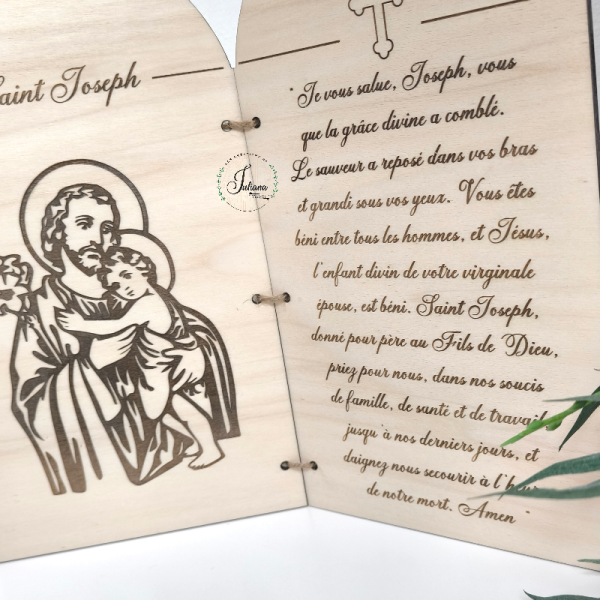 Saint Joseph
Juliana
" Je vous salue, Joseph, vous
que la grâce divine a comblé.
Le sauveur a reposé dans vos bras
et grandi sous vos yeux. Vous êtes
béni entre tous les hommes, et Jésus,
l'enfant divin de votre virginale
épouse, est béni. Saint Joseph,
donné pour père au Fils de Dieu,
priez pour nous, dans nos soucis
de famille, de santé et de travail
jusqu'à nos derniers jours, et
daignez nous secourir à l'heure
de notre mort. Amen "